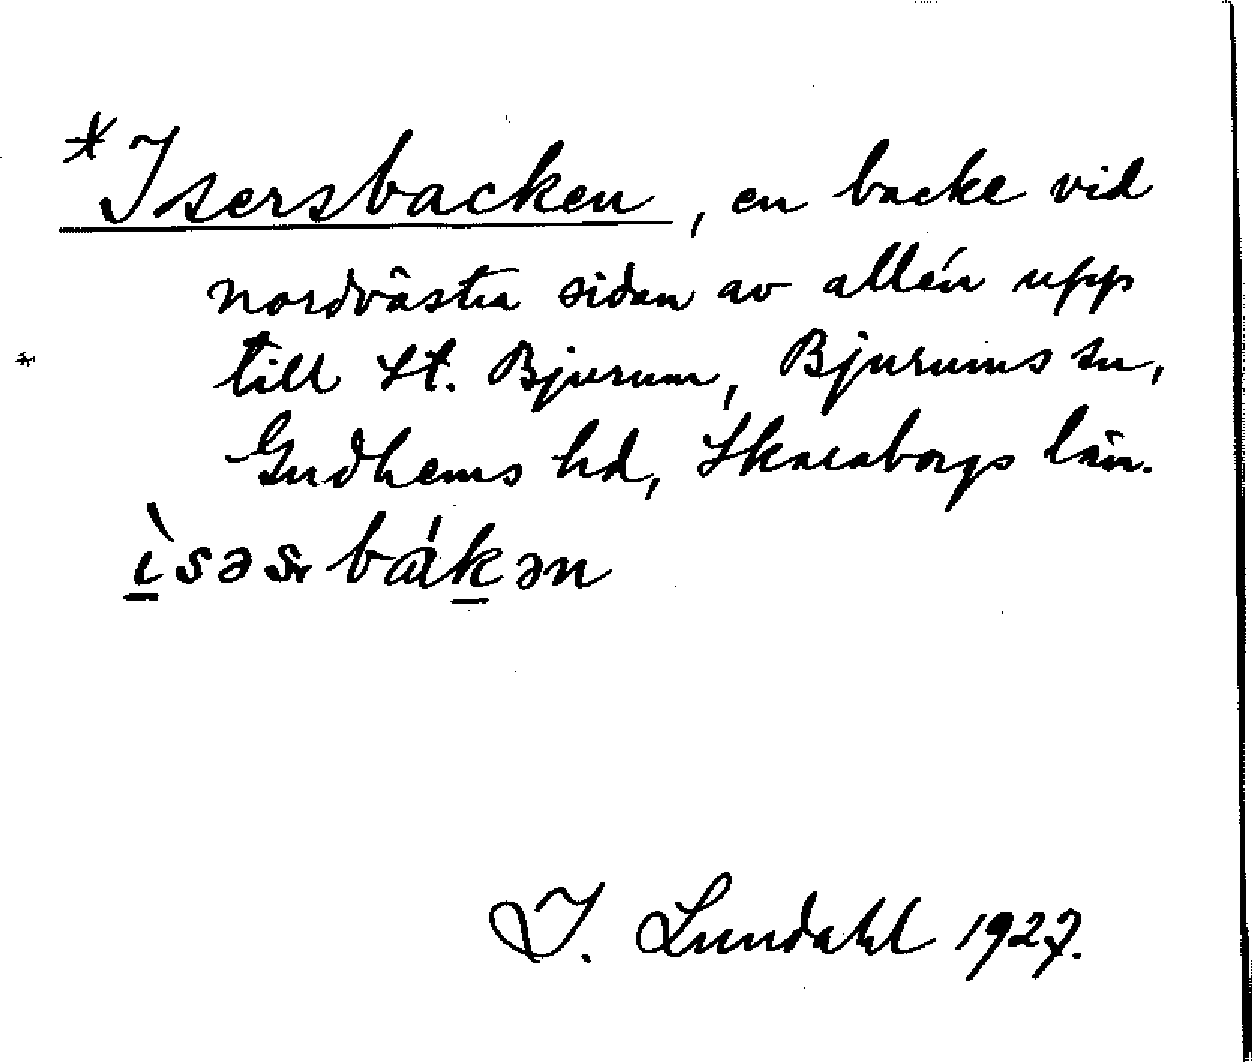 *Isersbacken, en backe vid
nordvästra sidan av allén upp
till St. Bjurum, Bjurums sn,
Gudhems hd, Skaraborgs län.
ı̀səsbákən
I. Lundahl 1927.